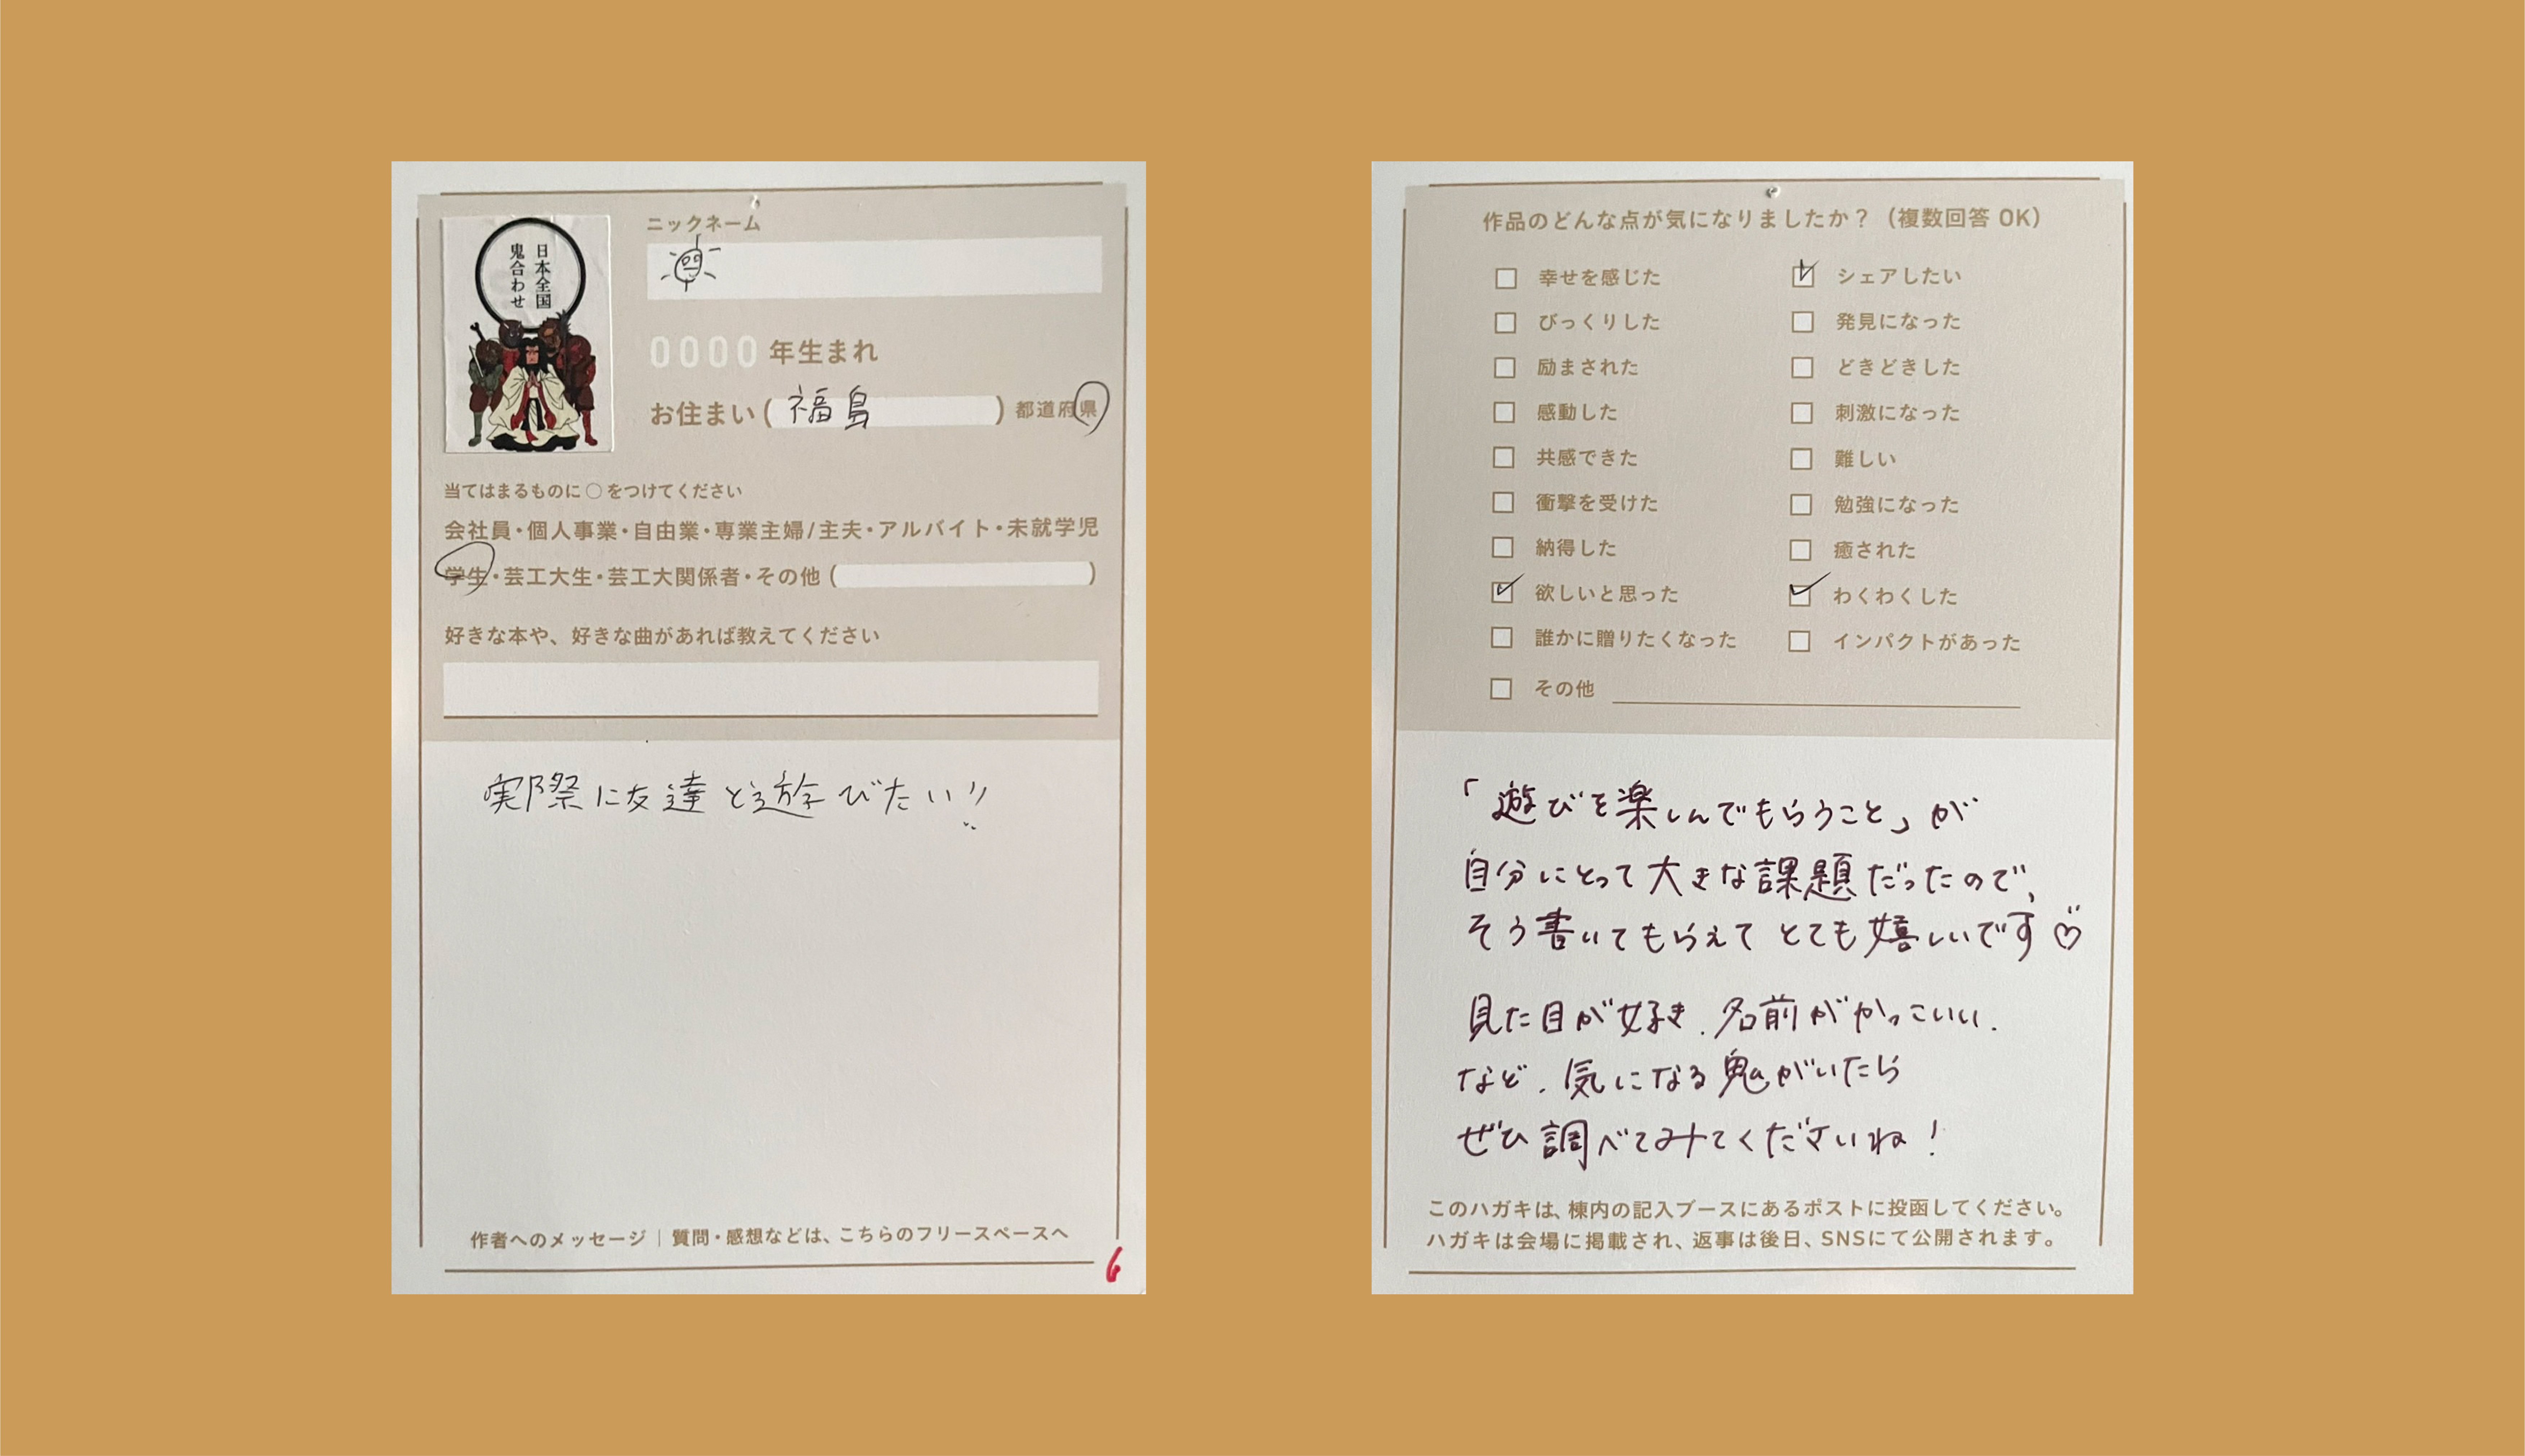 日本全国
鬼合わせ
ニックネーム
0000年生まれ
お住まい(福島)都道府県
当てはまるものに○をつけてください
会社員・個人事業・自由業・専業主婦/主夫・アルバイト・未就学児
学生・芸工大生・芸工大関係者・その他()
好きな本や、好きな曲があれば教えてください
実際に友達と遊びたい!!
作者へのメッセージ|質問・感想などは、こちらのフリースペースへ
6
作品のどんな点が気になりましたか?(複数回答 OK)
幸せを感じた
びっくりした
励まされた
感動した
共感できた
衝撃を受けた
納得した
欲しいと思った
誰かに贈りたくなった
その他
シェアしたい
発見になった
どきどきした
刺激になった
難しい
勉強になった
癒された
わくわくした
インパクトがあった
「遊びを楽しんでもらうこと」が
自分にとって大きな課題だったので、
そう書いてもらえてとても嬉しいです♡
見た目が好き、名前がかっこいい、
など、気になる鬼がいたら
ぜひ調べてみてくださいね!
このハガキは、棟内の記入ブースにあるポストに投函してください。
ハガキは会場に掲載され、返事は後日、SNSにて公開されます。